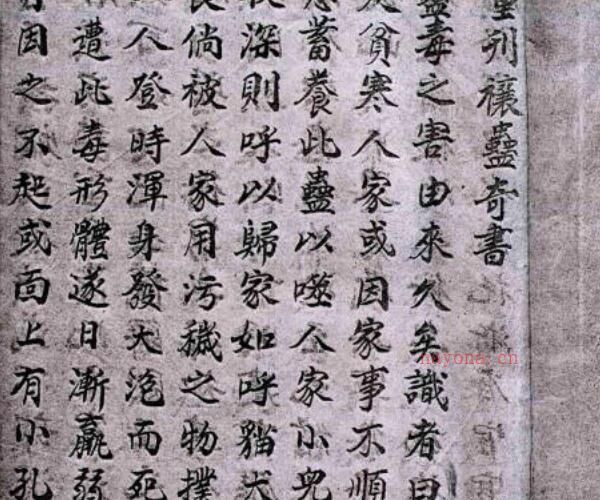 重刊禳蠱奇書
蠱毒之害由來久矣識者曰
貧寒人家或因家事不順
蓄養此蠱以噬人家小兒
深則呼以歸家如呼猫犬
倘被人家用污穢之物撲
人登時渾身發大泡而死
遭此毒形體遂日漸羸弱
因之不起或面上有小孔
nayona.cn